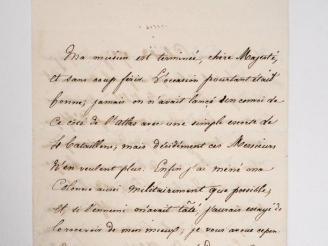 Ma mission est terminée, chère Majesté,
et sans coup férir. L'occasion pourtant était
bonne; jamais on n'avait lancé un convoi de
ce côté de l'atlas avec une simple escorte de
4 bataillons; mais décidément ces Messieurs
n'en veulent plus. Enfin j'ai mené ma
Colonne aussi militairement que possible,
et si l'ennemi m'avait tâté j'aurais essayé de
le recevoir de mon mieux; je vous avoue cepen